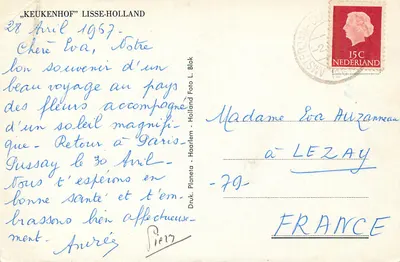 „KEUKENHOF" LISSE-HOLLAND
28 Avril 1967.
Chère Eva, Notre
bon souvenir d'un
beau voyage au pays
des fleurs accompagné
d'un soleil magnifi-
que - Retour à Paris-
Pussay le 30 Avril-
Nous t'espérons en
bonne santé et t'em-
brassons bien affectueuse-
ment. Andrée
Druk. Planeta - Haarlem - Holland Foto L. Blok
15C
NEDERLAND
Madame Eva Auzanneau
à LEZAY
-79-
FRANCE